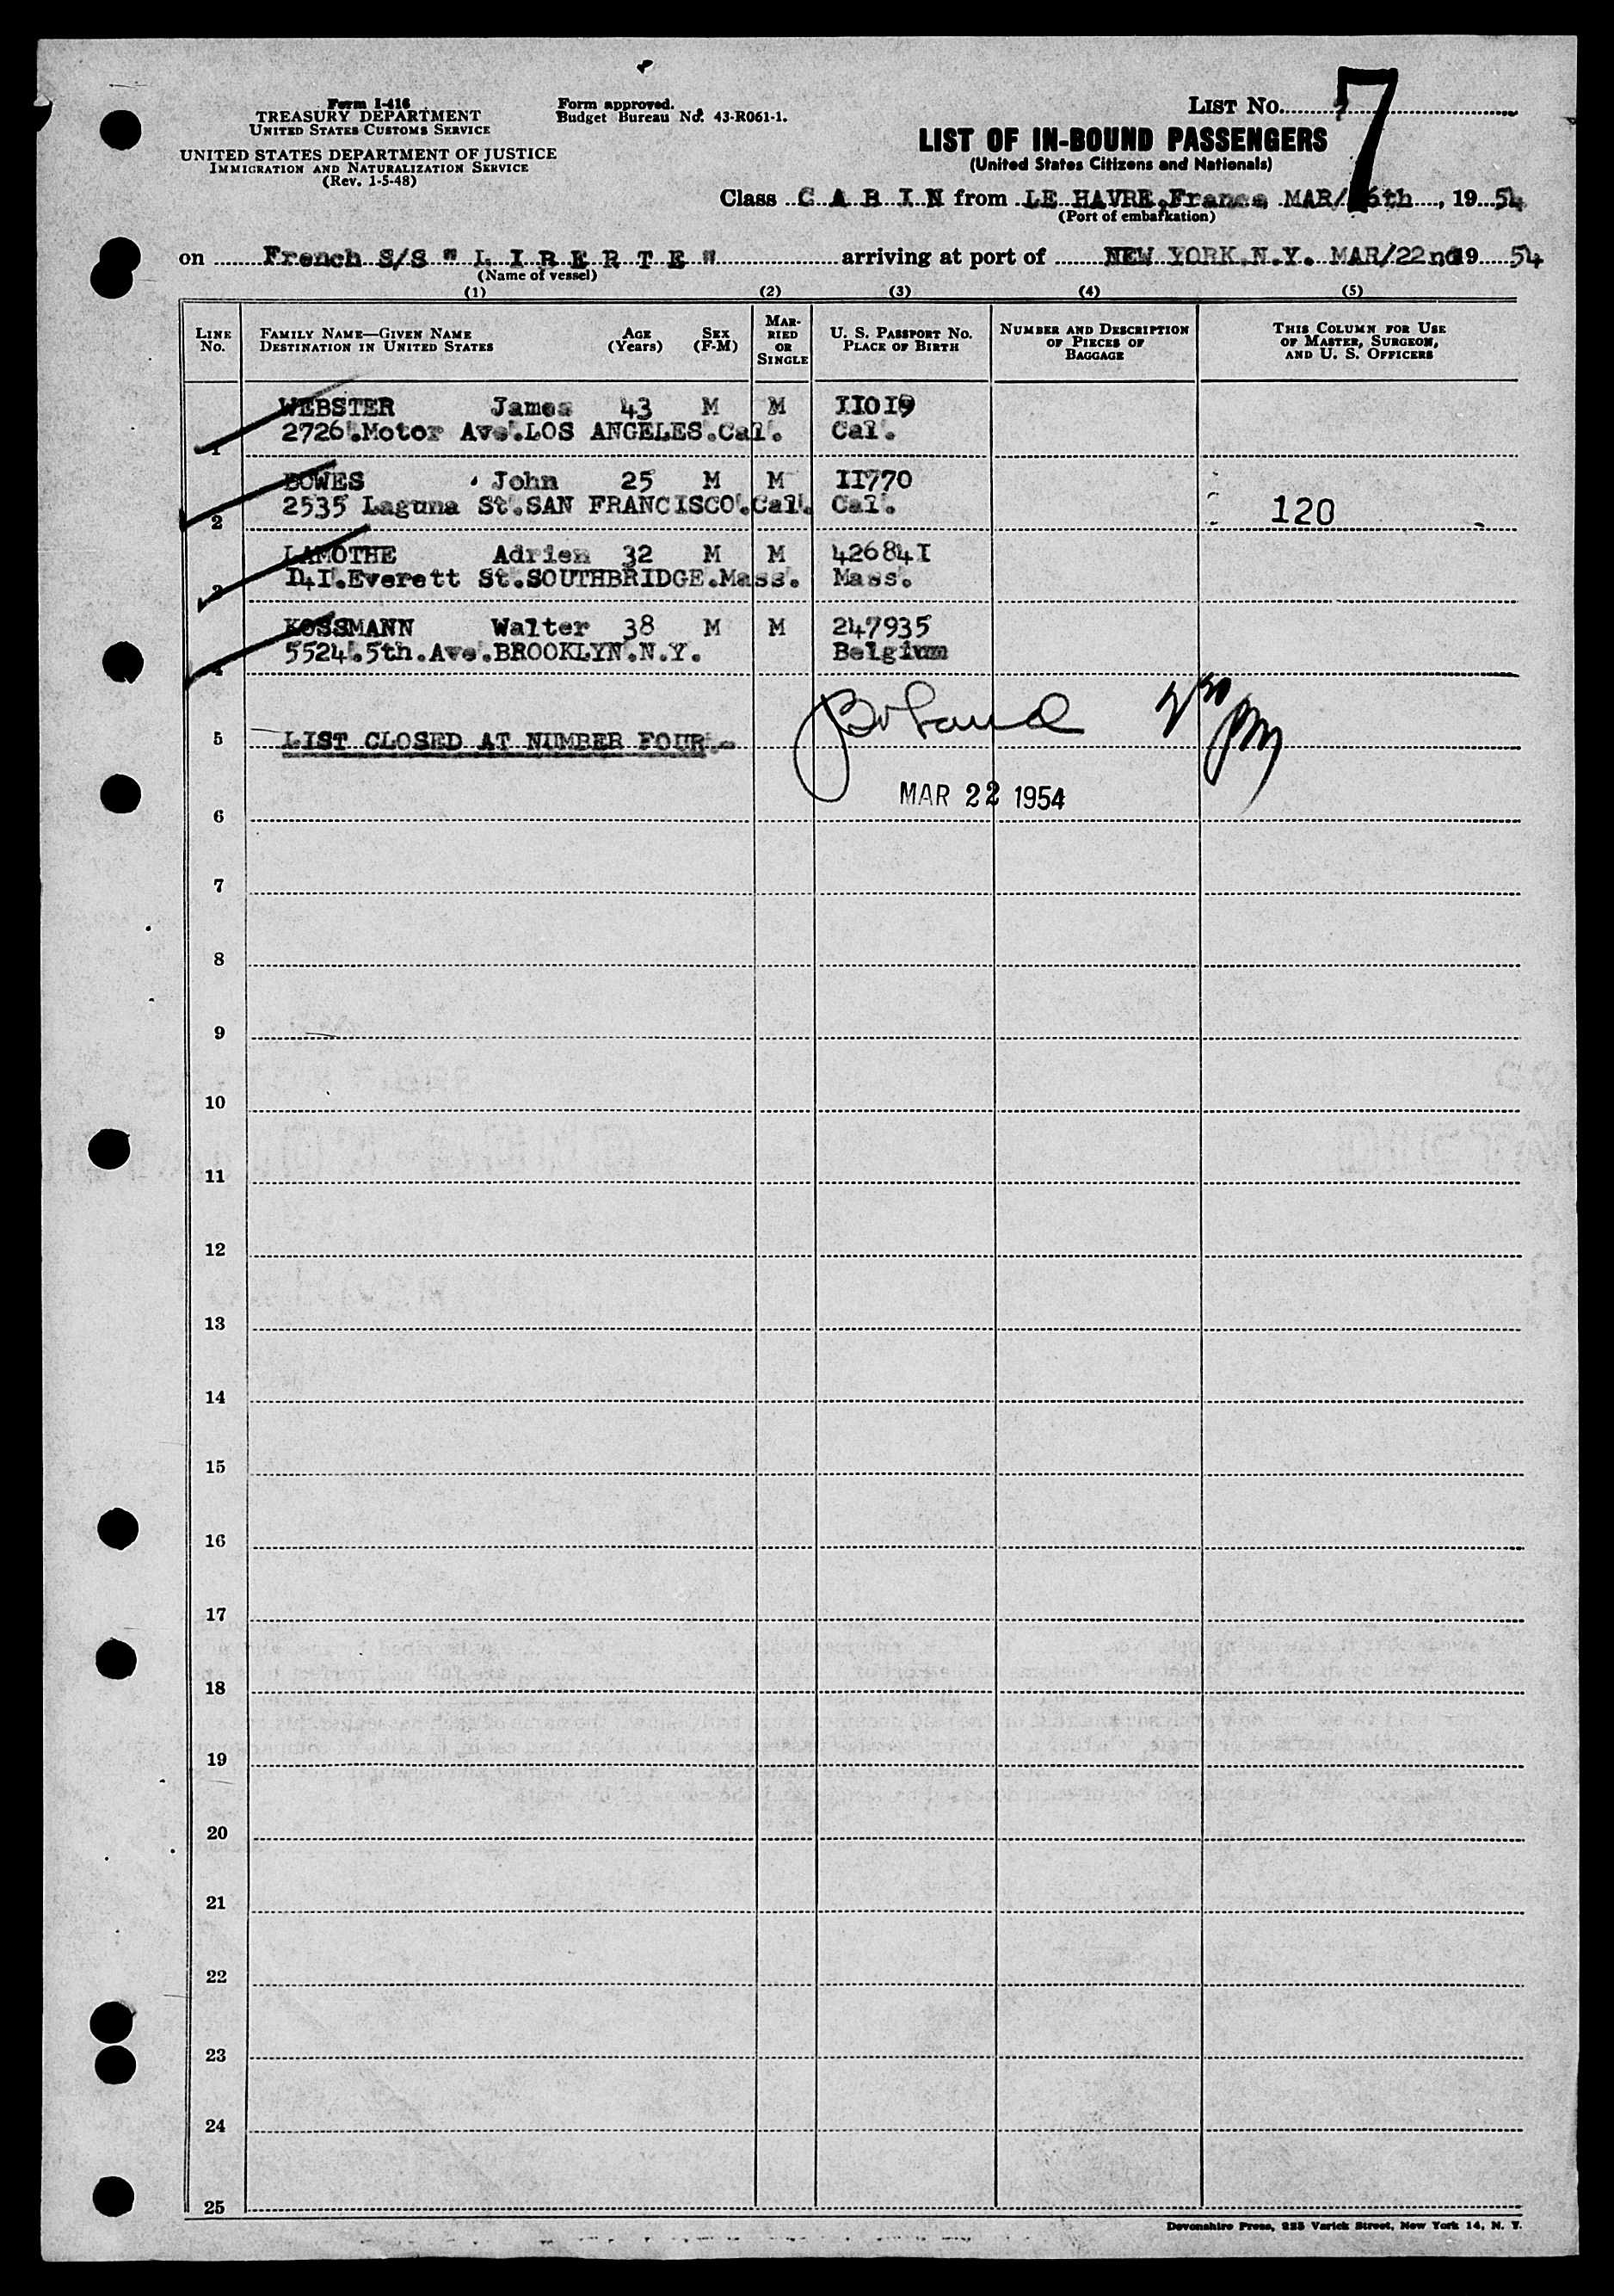 Form I-416
TREASURY DEPARTMENT
UNITED STATES CUSTOMS SERVICE
UNITED STATES DEPARTMENT OF JUSTICE
IMMIGRATION AND NATURALIZATION SERVICE
(Rev. 1-5-48)
Form approved.
Budget Bureau No. 43-R061-1.
LIST No. 7
LIST OF IN-BOUND PASSENGERS
(United States Citizens and Nationals)
Class C A B I N from LE HAVRE,France, MAR/ 6th, 1954
(Port of embarkation)
on French S/S " L I B E R T E " arriving at port of NEW YORK.N.Y. MAR/22nd 1954
(Name of vessel)
(1) (2) (3) (4) (5)
LINE No. FAMILY NAME—GIVEN NAME DESTINATION IN UNITED STATES AGE (Years) SEX (F-M) MARRIED OR SINGLE U. S. PASSPORT NO. PLACE OF BIRTH NUMBER AND DESCRIPTION OF PIECES OF BAGGAGE THIS COLUMN FOR USE OF MASTER, SURGEON, AND U. S. OFFICERS
1 WEBSTER James 43 M M II0I9
2726.Motor Ave.LOS ANGELES.Cal. Cal.
2 BOWES John 25 M M II770
2535 Laguna St.SAN FRANCISCO.Cal. Cal. 120
3 LAMOTHE Adrien 32 M M 42684I
I4I.Everett St.SOUTHBRIDGE.Mass. Mass.
4 KOSSMANN Walter 38 M M 247935
5524.5th.Ave.BROOKLYN.N.Y. Belgium
5 LIST CLOSED AT NUMBER FOUR.-
MAR 22 1954
6
7
8
9
10
11
12
13
14
15
16
17
18
19
20
21
22
23
24
25
Devonshire Press, 225 Varick Street, New York 14, N. Y.